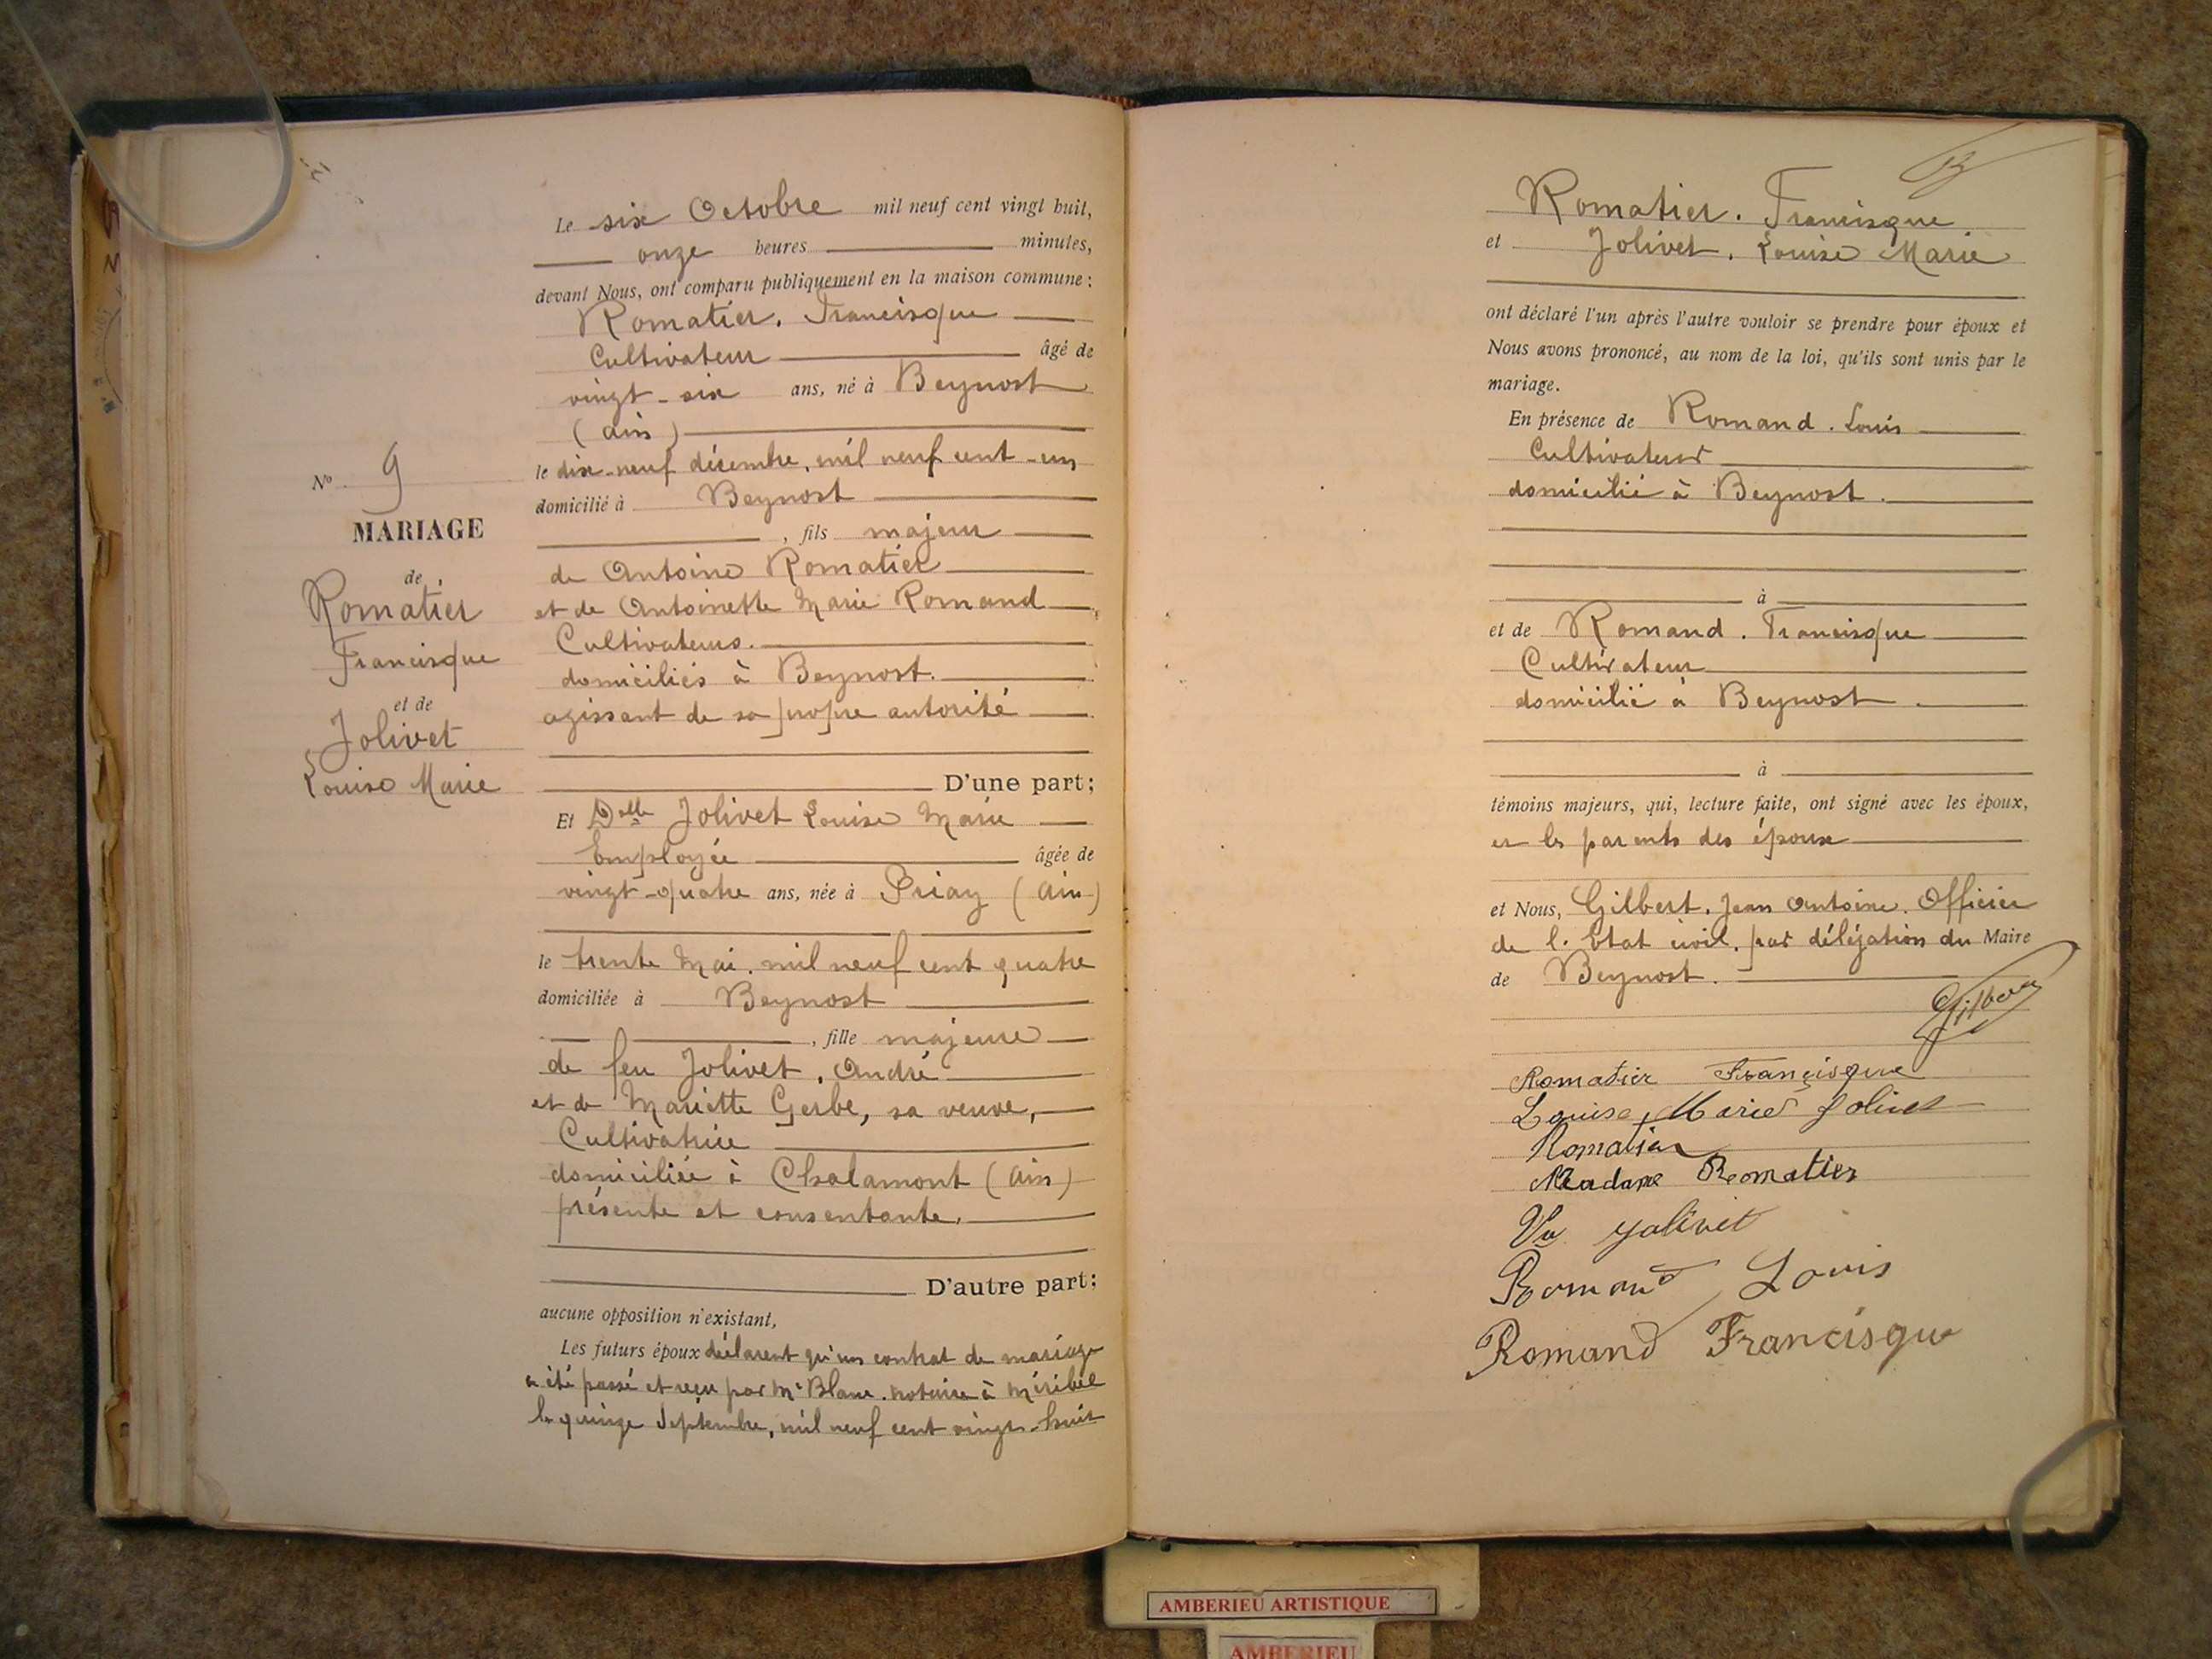 Le six Octobre mil neuf cent vingt huit,
onze heures minutes,
devant Nous, ont comparu publiquement en la maison commune :
Romatier. Francisque
Cultivateur âgé de
vingt-six ans, né à Beynost
(Ain)
le dix-neuf décembre, mil neuf cent-un
domicilié à Beynost
, fils majeur
de Antoine Romatier
et de Antoinette Marie Romand
Cultivateurs.
domiciliés à Beynost.
agissant de sa propre autorité
D'une part;
Et Delle Jolivet Louise Marie
Employée âgée de
vingt-quatre ans, née à Priay (Ain)
le trente Mai. mil neuf cent quatre
domiciliée à Beynost
, fille majeure
de feu Jolivet. André
et de Mariette Gerbe, sa veuve,
Cultivatrice
domiciliée à Chalamont (Ain)
présente et consentante.
D'autre part;
aucune opposition n'existant,
Les futurs époux déclarent qu'un contrat de mariage
a été passé et reçu par Me Blanc. notaire à Miribel
le quinze Septembre, mil neuf cent vingt-huit
No 9
MARIAGE
de
Romatier
Francisque
et de
Jolivet
Louise Marie
Romatier. Francisque
et Jolivet. Louise Marie
ont déclaré l'un après l'autre vouloir se prendre pour époux et
Nous avons prononcé, au nom de la loi, qu'ils sont unis par le
mariage.
En présence de Romand. Louis
Cultivateur
domicilié à Beynost.
à
et de Romand. Francisque
Cultivateur
domicilié à Beynost.
à
témoins majeurs, qui, lecture faite, ont signé avec les époux,
et les parents des époux
et Nous, Gilbert. Jean Antoine. Officier
de l'Etat civil. par délégation du Maire
de Beynost.
Gilbert
Romatier Françisque
Louise Marie Jolivet
Romatier
Madame Romatier
Ve Jolivet
Romand Louis
Romand Francisque
AMBERIEU ARTISTIQUE
AMBERIEU